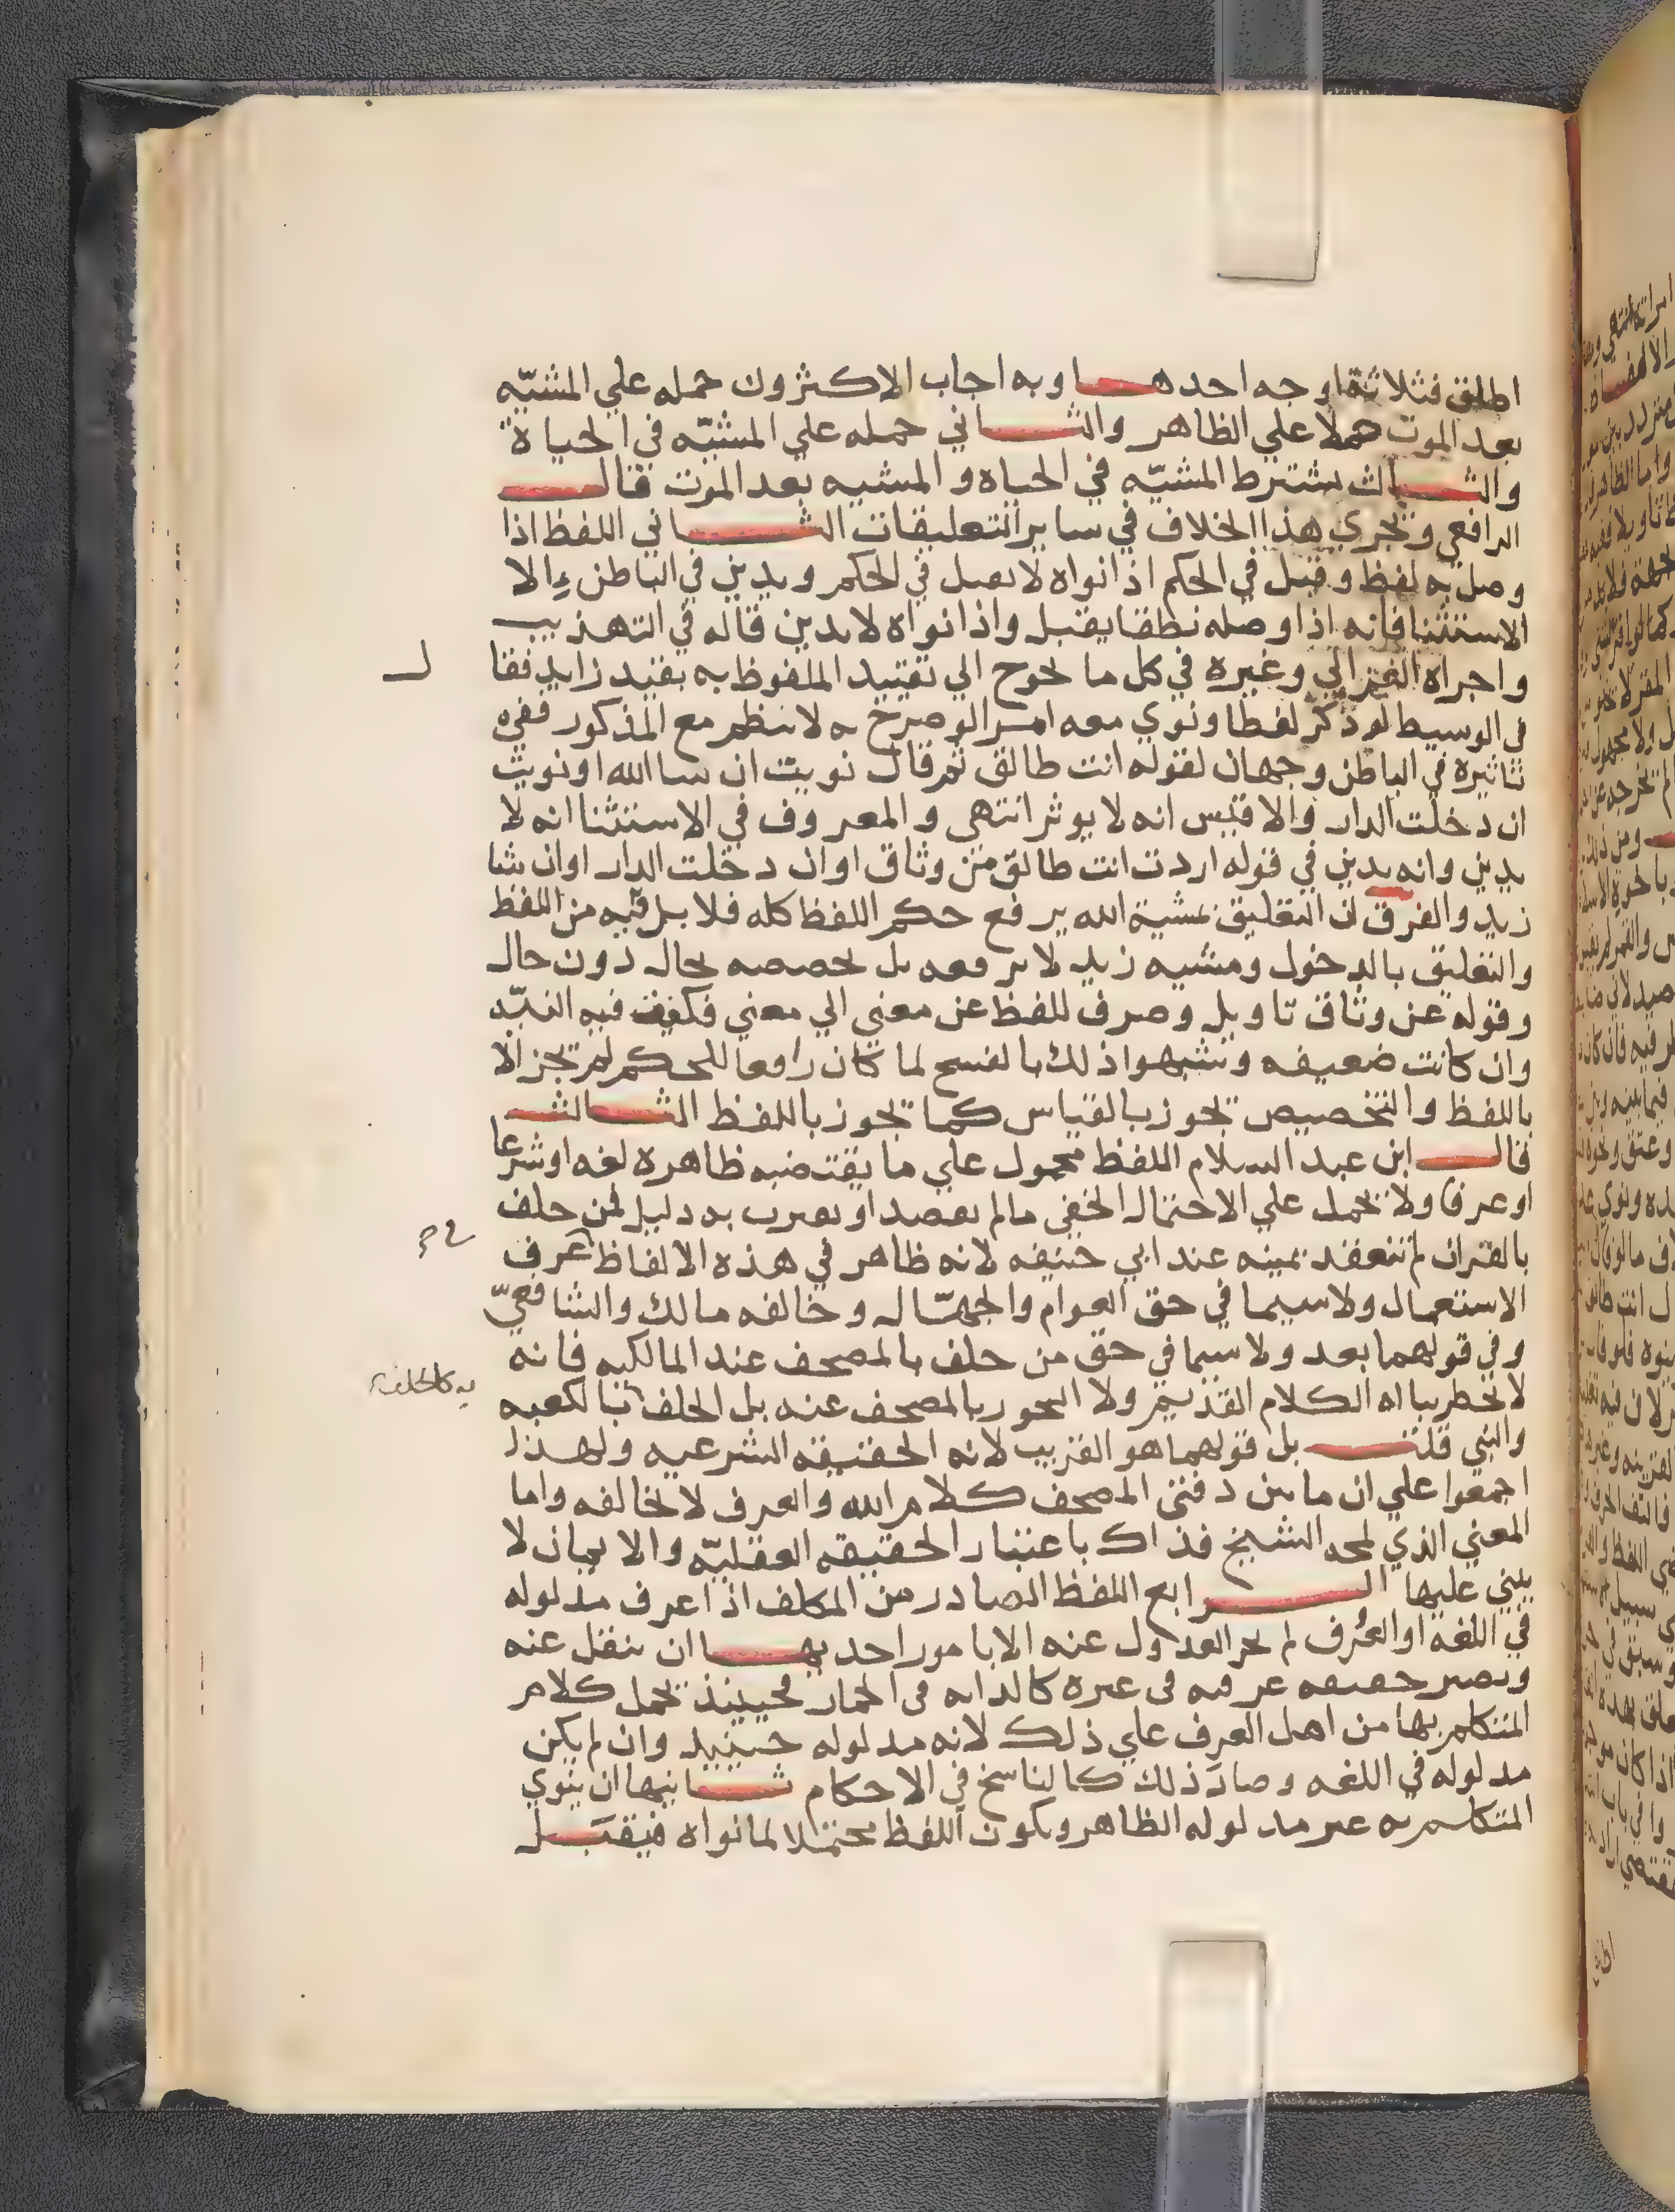 اطلق فثلاثة اوجه احدها وبه اجاب الاكثرون حمله علي المشيّه
بعد الموت حملا علي الظاهر والثاني حمله علي المشيّه في الحياة
والثالث يشترط المشيّه في الحياه والمشيه بعد الموت قال
الرافعي وتجري هذا الخلاف في ساير التعليقات الثاني اللفظ اذا
وصل به لفظ وقبل في الحكم اذا نواه لا يقبل في الحكم ويدين في الباطن الا
الاستثنا فانه اذا وصله نطقا يقبل واذا نواه لا يدين قاله في التهذيب
واجراه الغزالي وغيره في كل ما يحوج الي تقييد الملفوظ به بقيد زايد فقا ل
في الوسيط لو ذكر لفظا ونوي معه امرا لو صرح به لانتظم مع المذكور ففي
تاثيره في الباطن وجهان لقوله انت طالق ثم قال نويت ان شا الله او نويت
ان دخلت الدار والاقيس انه لا يوثر انتهي والمعروف في الاستثنا انه لا
يدين وانه يدين في قوله اردت انت طالق من وثاق او ان دخلت الدار او ان شا
زيد والفرق ان التعليق بمشية الله يرفع حكم اللفظ كله فلا بد فيه من اللفظ
والتعليق بالدخول ومشيه زيد لا يرفعه بل يخصصه بحال دون حال
وقوله عن وثاق تاويل وصرف للفظ عن معني الي معني فكفت فيه النيّه
وان كانت ضعيفه وشبهوا ذلك بالفسخ لما كان رافعا للحكم لم يجز الا
باللفظ والتخصيص يجوز بالقياس كما يجوز باللفظ الثالث
قال ابن عبد السلام اللفظ محمول علي ما يقتضيه ظاهره لغه او شرعا
او عرفا ولا يحمل علي الاحتمال الخفي مالم يقصد او يقترن به دليل فمن حلف
بالقران لم تنعقد يمينه عند ابي حنيفه لانه ظاهر في هذه الالفاظ عرف
الاستعمال ولا سيما في حق العوام والجهّال وخالفه مالك والشافعيّ
وفي قولهما بعد ولا سيما في حق من حلف بالمصحف عند المالكيه فانه
لا يخطر بباله الكلام القديم ولا التجوز بالمصحف عنه بل الحلف به كالحلف بالكعبه
والنبي قلت بل قولهما هو القريب لانه الحقيقه الشرعيه ولهذا
اجمعوا علي ان ما بين دفتي المصحف كلام الله والعرف لا يخالفه واما
المعني الذي لمحه الشيخ فذاك باعتبار الحقيقه العقليّه والايمان لا
يبني عليها الرابع اللفظ الصادر من المكلف اذا عرف مدلوله
في اللغه او العُرف لم يجز العدول عنه الا بامور احديها ان ينقل عنه
ويصير حقيقه عرفيه في غيره كالدابه في الحمار فحينيذ يحمل كلام
المتكلم بها من اهل العرف علي ذلك لانه مدلوله حينيذ وان لم يكن
مدلوله في اللغه وصار ذلك كالناسخ في الاحكام ثانيها ان ينوي
المتكلم به غير مدلوله الظاهر ويكون اللفظ محتملا لما نواه فيقبل